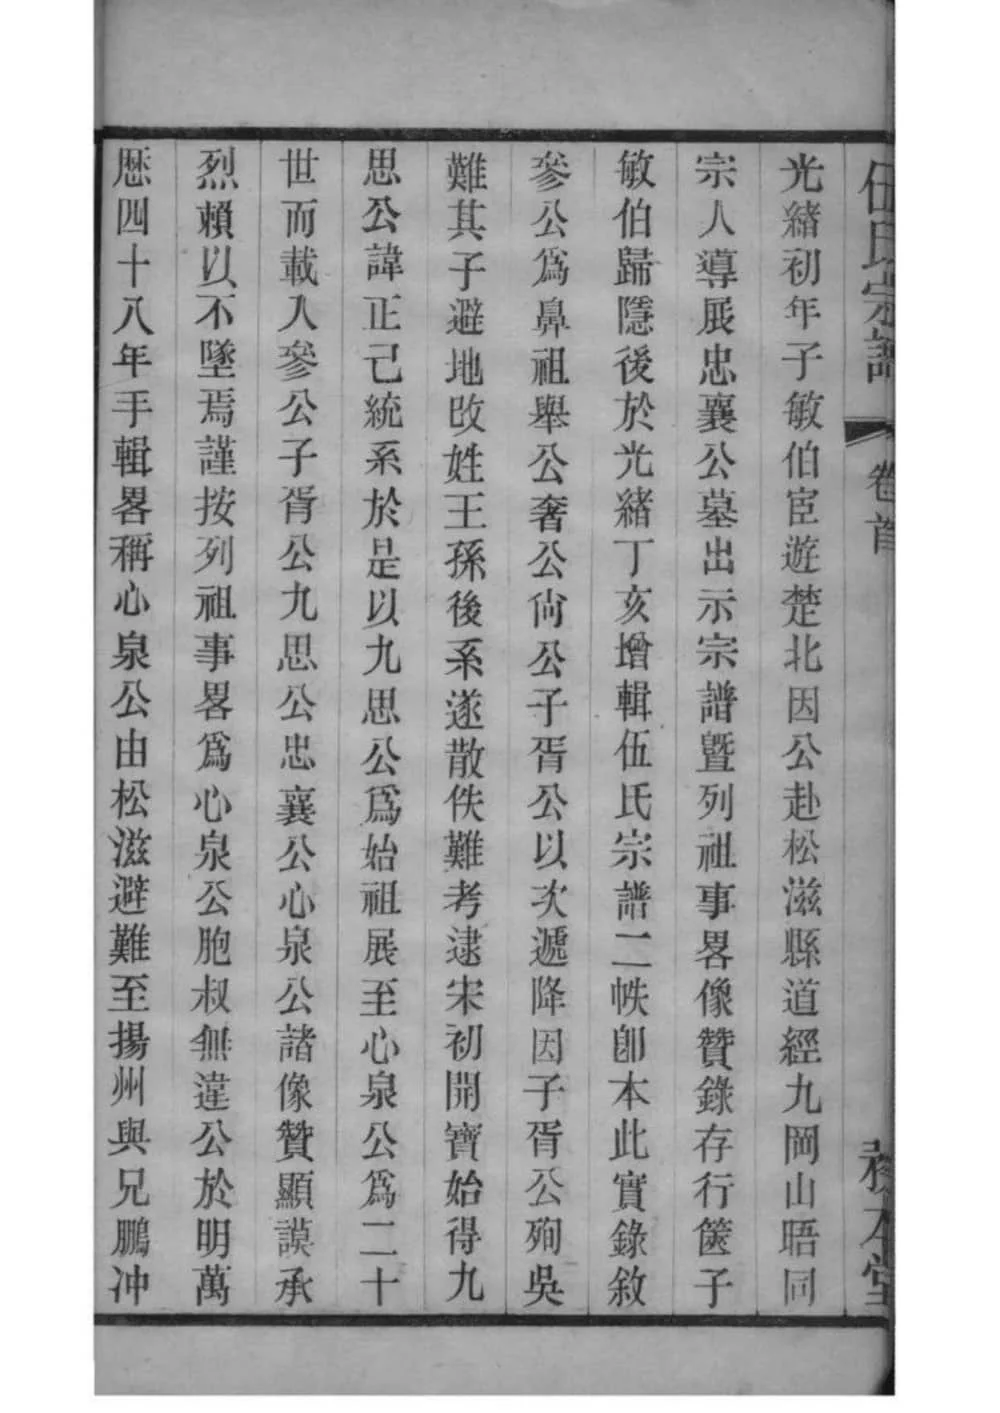 伍氏宗譜 卷首 務本堂
光緒初年子敏伯宦遊楚北因公赴松滋縣道經九岡山晤同
宗人導展忠襄公墓出示宗譜曁列祖事畧像贊錄存行篋子
敏伯歸隱後於光緒丁亥增輯伍氏宗譜二帙卽本此實錄敘
參公爲鼻祖舉公奢公尙公子胥公以次遞降因子胥公殉吳
難其子避地改姓王孫後系遂散佚難考逮宋初開寶始得九
思公諱正己統系於是以九思公爲始祖展至心泉公爲二十
世而載入參公子胥公九思公忠襄公心泉公諸像贊顯謨承
烈賴以不墜焉謹按列祖事畧爲心泉公胞叔無違公於明萬
歷四十八年手輯畧稱心泉公由松滋避難至揚州與兄鵬冲